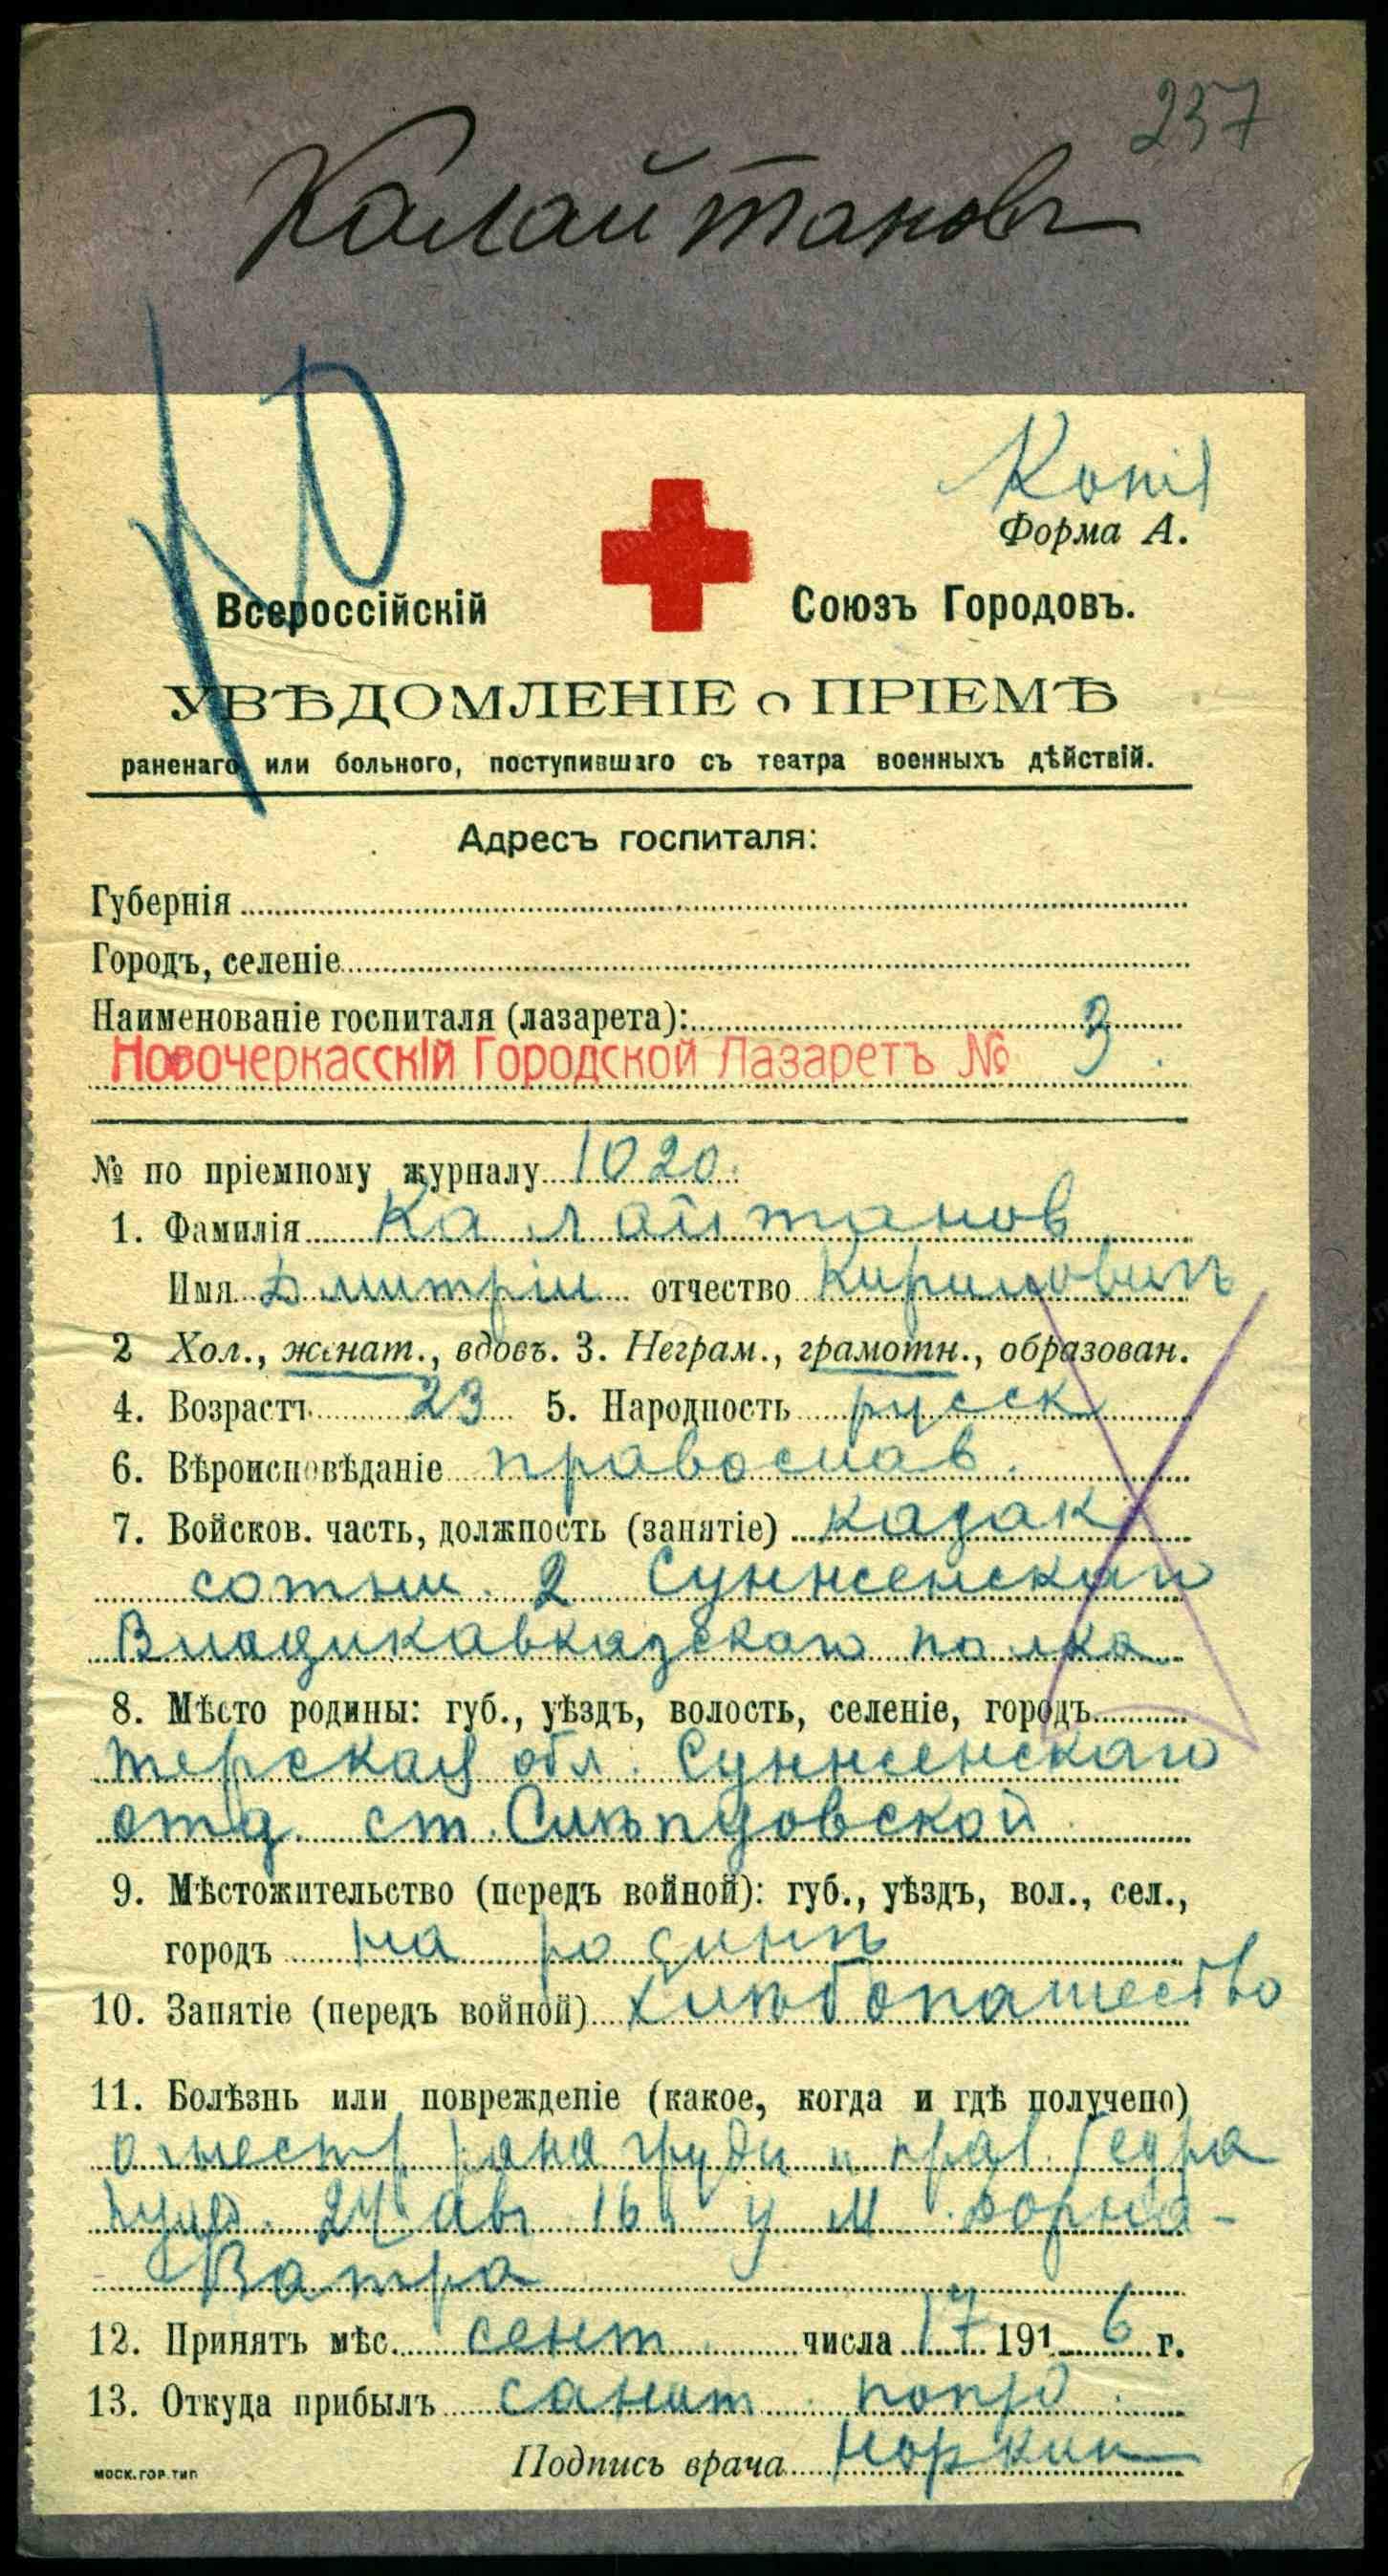 237
Калайтановъ
Копія
Форма А.
Всероссійскій Союзъ Городовъ.
УВѢДОМЛЕНІЕ о ПРІЕМѢ
раненаго или больного, поступившаго съ театра военныхъ дѣйствій.
Адресъ госпиталя:
Губернія
Городъ, селеніе
Наименованіе госпиталя (лазарета):
Новочеркасскій Городской Лазаретъ № 3
№ по пріемному журналу 1020
1. Фамилія Калайтанов
Имя Дмитрій отчество Кирилович
2 Хол., женат., вдовъ. 3. Неграм., грамотн., образован.
4. Возрастъ 23 5. Народность русск
6. Вѣроисповѣданіе православ.
7. Войсков. часть, должность (занятіе) казак
сотни 2 Сунженскаго
Владикавказскаго полка
8. Мѣсто родины: губ., уѣздъ, волость, селеніе, городъ
Терская обл. Сунженскаго
отд. ст. Слѣпцовской
9. Мѣстожительство (передъ войной): губ., уѣздъ, вол., сел.,
городъ на родинѣ
10. Занятіе (передъ войной) хлѣбопашество
11. Болѣзнь или поврежденіе (какое, когда и гдѣ получено)
огнестр рана груди и прав бедра
24 Авг 16 у м Дорна-
Ватра
12. Принятъ мѣс. сент числа 17 1916 г.
13. Откуда прибылъ санит
Подпись врача
МОСК.ГОР.ТИП